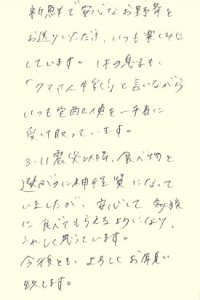 新鮮で安心なお野菜を
お送りいただき、いつも楽しみに
しています。1才の息子も、
「クマさん牛乳」と言いながら
いつも宅配の方を一手者に
受け取っています。
3.11震災以降、食べ物を
選ぶのに神経質になって
いましたが、安心して家族
に食べてもらえるようになり、
うれしく思っています。
今後とも、よろしくお願い
致します。